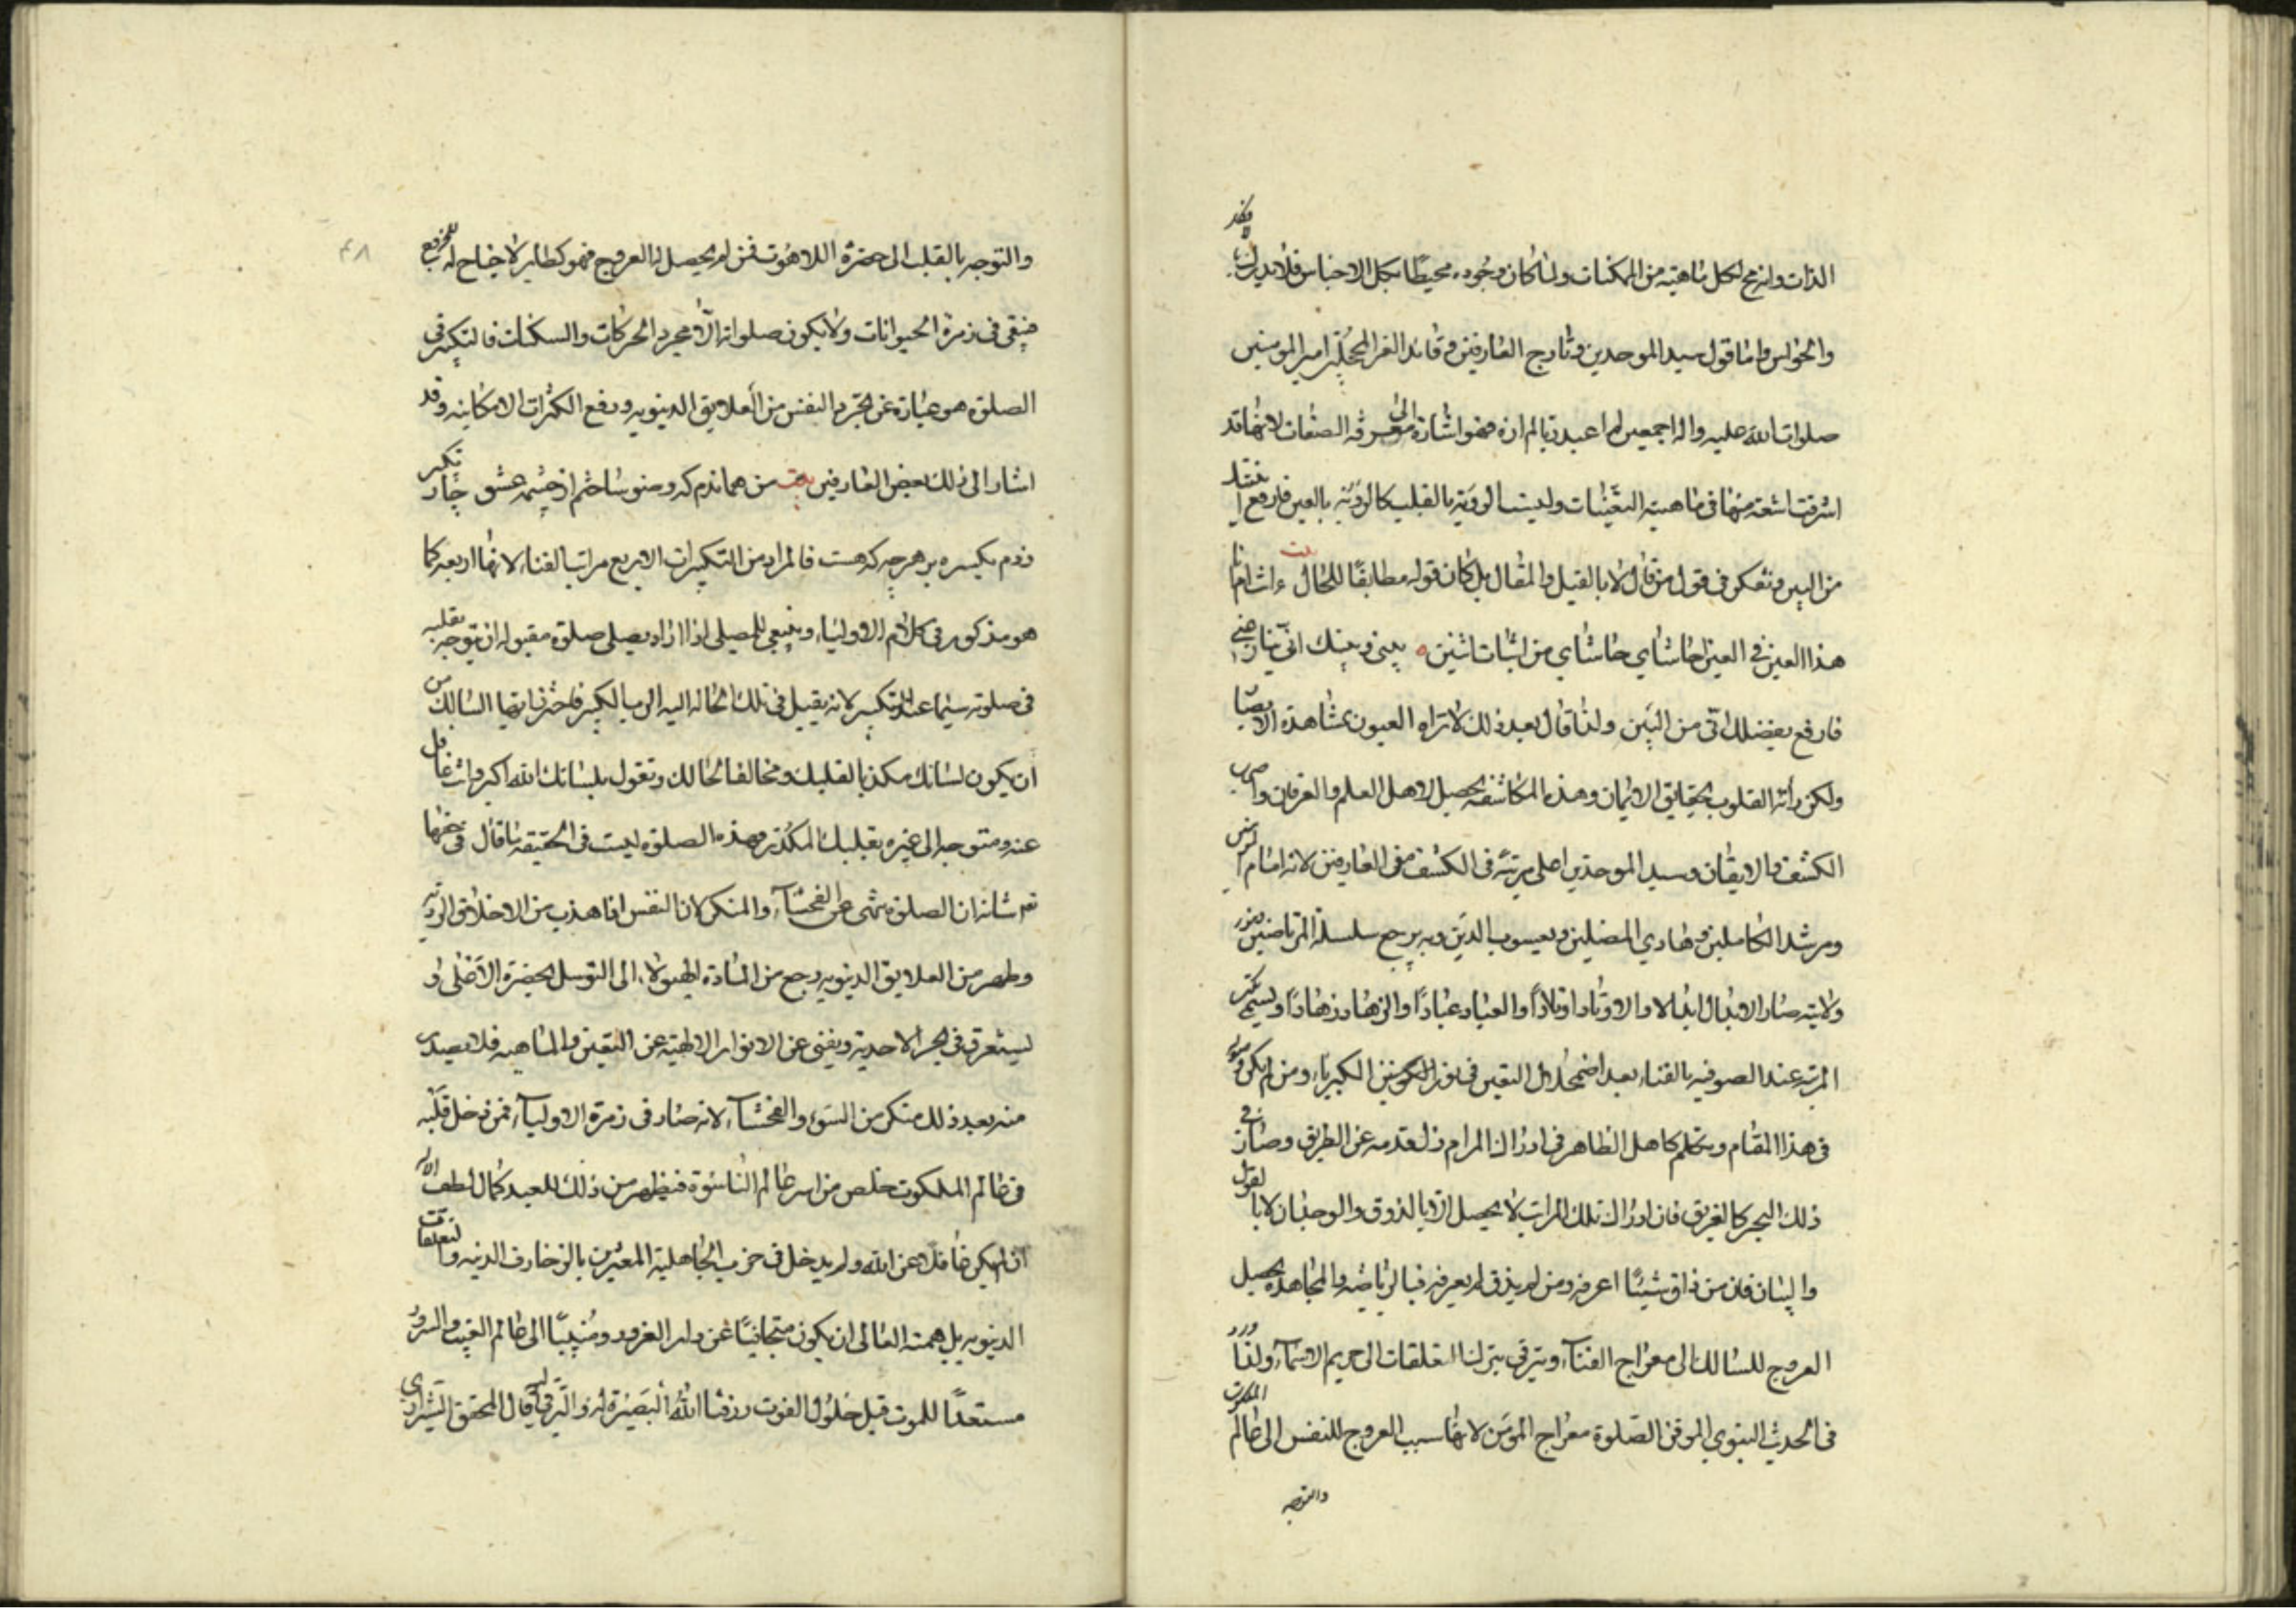 الذات وانه مح لكل ماهيته من الممكنات ولما كان وجوده محيطًا بكل الاجناس فلا يدرك بالافكار
والحواس واما قول سيد الموحدين وتاج العارفين وقائد الغر المحجلين امير المومنين
صلوات الله عليه واله اجمعين لم اعبد ربا لم اره فهو اشارة الى معرفة الصفات لانها قد
اشرقت اشعة منها في ماهية التعينات وليست الرؤية بالقلب كالرؤية بالعين فارفع
من البين وتفكر في قول من قال لا بالقيل والمقال بل كان قوله مطابقًا للحال بيت ءانت ام انا
هذا العين في العين حاشاي حاشاي من اثبات اثنين بيني وبينك اني ينازعني
فارفع بفضلك اني من البين ولذا قال بعد ذلك لا تراه العيون بمشاهدة الابصار
ولكن رأته القلوب بحقايق الايمان وهذه المكاشفة يحصل لاهل العلم والعرفان واصحاب
الكشف والايقان وسيد الموحدين اعلى مرتبة في الكشف من العارفين لانه امام
ومرشد الكاملين وهادي المضلين ويعسوب الدين وبه يرجع سلسلة المرتاضين وبنور
ولايته صار الابدال ابدالا والاوتاد اوتادًا والعباد عبادًا والزهاد زهادًا ويسمى تلك
المرتبة عند الصوفيه بالفناء بعد اضمحلال التعين في نور الكونين الكبرياء ومن لم يكن
في هذا المقام وتكلم كاهل الظاهر في ادراك المرام زل قدمه عن الطريق وصار في
ذلك البحر كالغريق فان ادراك تلك المراتب لا يحصل الا بالذوق والوجدان لا بالقول
والبيان فان من ذاق شيئًا اعرفه ومن لم يذق لم يعرفه فبالرياضة والمجاهدة يحصل
العروج للسالك الى معراج الفناء ويترقى بترك التعلقات الى حريم الاسماء ولذا ورد
في الحديث النبوي الموقن الصلوة معراج المومن لانها سبب العروج للنفس الى عالم الملكوت
والتوجه
٤٨
والتوجه بالقلب الى حضرة اللاهوت فمن لم يحصل له العروج فهو كطاير لا جناح له
فبقي في زمرة الحيوانات ولا يكون صلواته الا مجرد الحركات والسكنات فالتكبير في
الصلوة هو عبارة عن تجرد النفس من العلايق الدينويه ورفع الكثرات الامكانيه وقد
اشار الى ذلك بعض العارفين بيت من هماندم كه وضو ساختم از چشمه عشق چار تكبير
زدم يكسره بر هر چه كه هست فالمراد من التكبيرات الاربع مراتب الفناء لانها اربعه كما
هو مذكور في كلام الاولياء وينبغي للمصلي اذا اراد يصلي صلوة مقبوله ان يتوجه بقلبه
في صلوته سيما عند التكبير لانه يقبل في تلك الحاله اليه الرب الكبير فاحذر ايها السالك من
ان يكون لسانك مكذبا لقلبك ومخالفا لحالك وتقول بلسانك الله اكبر وانت غافل
عنه ومتوجه الى غيره بقلبك المكذر وهذه الصلوة ليست في الحقيقة ما قال في حقها
تعالى شانه ان الصلوة تنهى عن الفحشاء والمنكر لان النفس اذا هذب من الاخلاق الرديه
وطهر من العلايق الدينويه رجع من المادة الهيولا الى التوسل بحضرة الاعلى و
ليستغرق في بحر الاحدية ويفنى عن الانوار الالهية عن التعين والماهيه فلا يصدر
منه بعد ذلك منكر من السوء والفحشاء لانه صار في زمرة الاولياء فمن دخل قلبه
في عالم الملكوت خلص من اسر عالم الناسوة فيظهر من ذلك للعبد كمال لطف الاله
ان لم يكن غافلا عن الله ولم يدخل في حزب الجاهلية المغرين بالزخارف الدنيه والتعلقات
الدينويه بل همته العالي ان يكون متجانبًا عن دار الغرور ومنيبًا الى عالم الغيب والسرور
مستعدًا للموت قبل حلول الفوت رزقنا الله البصيرة قال المحقق الشيرازي